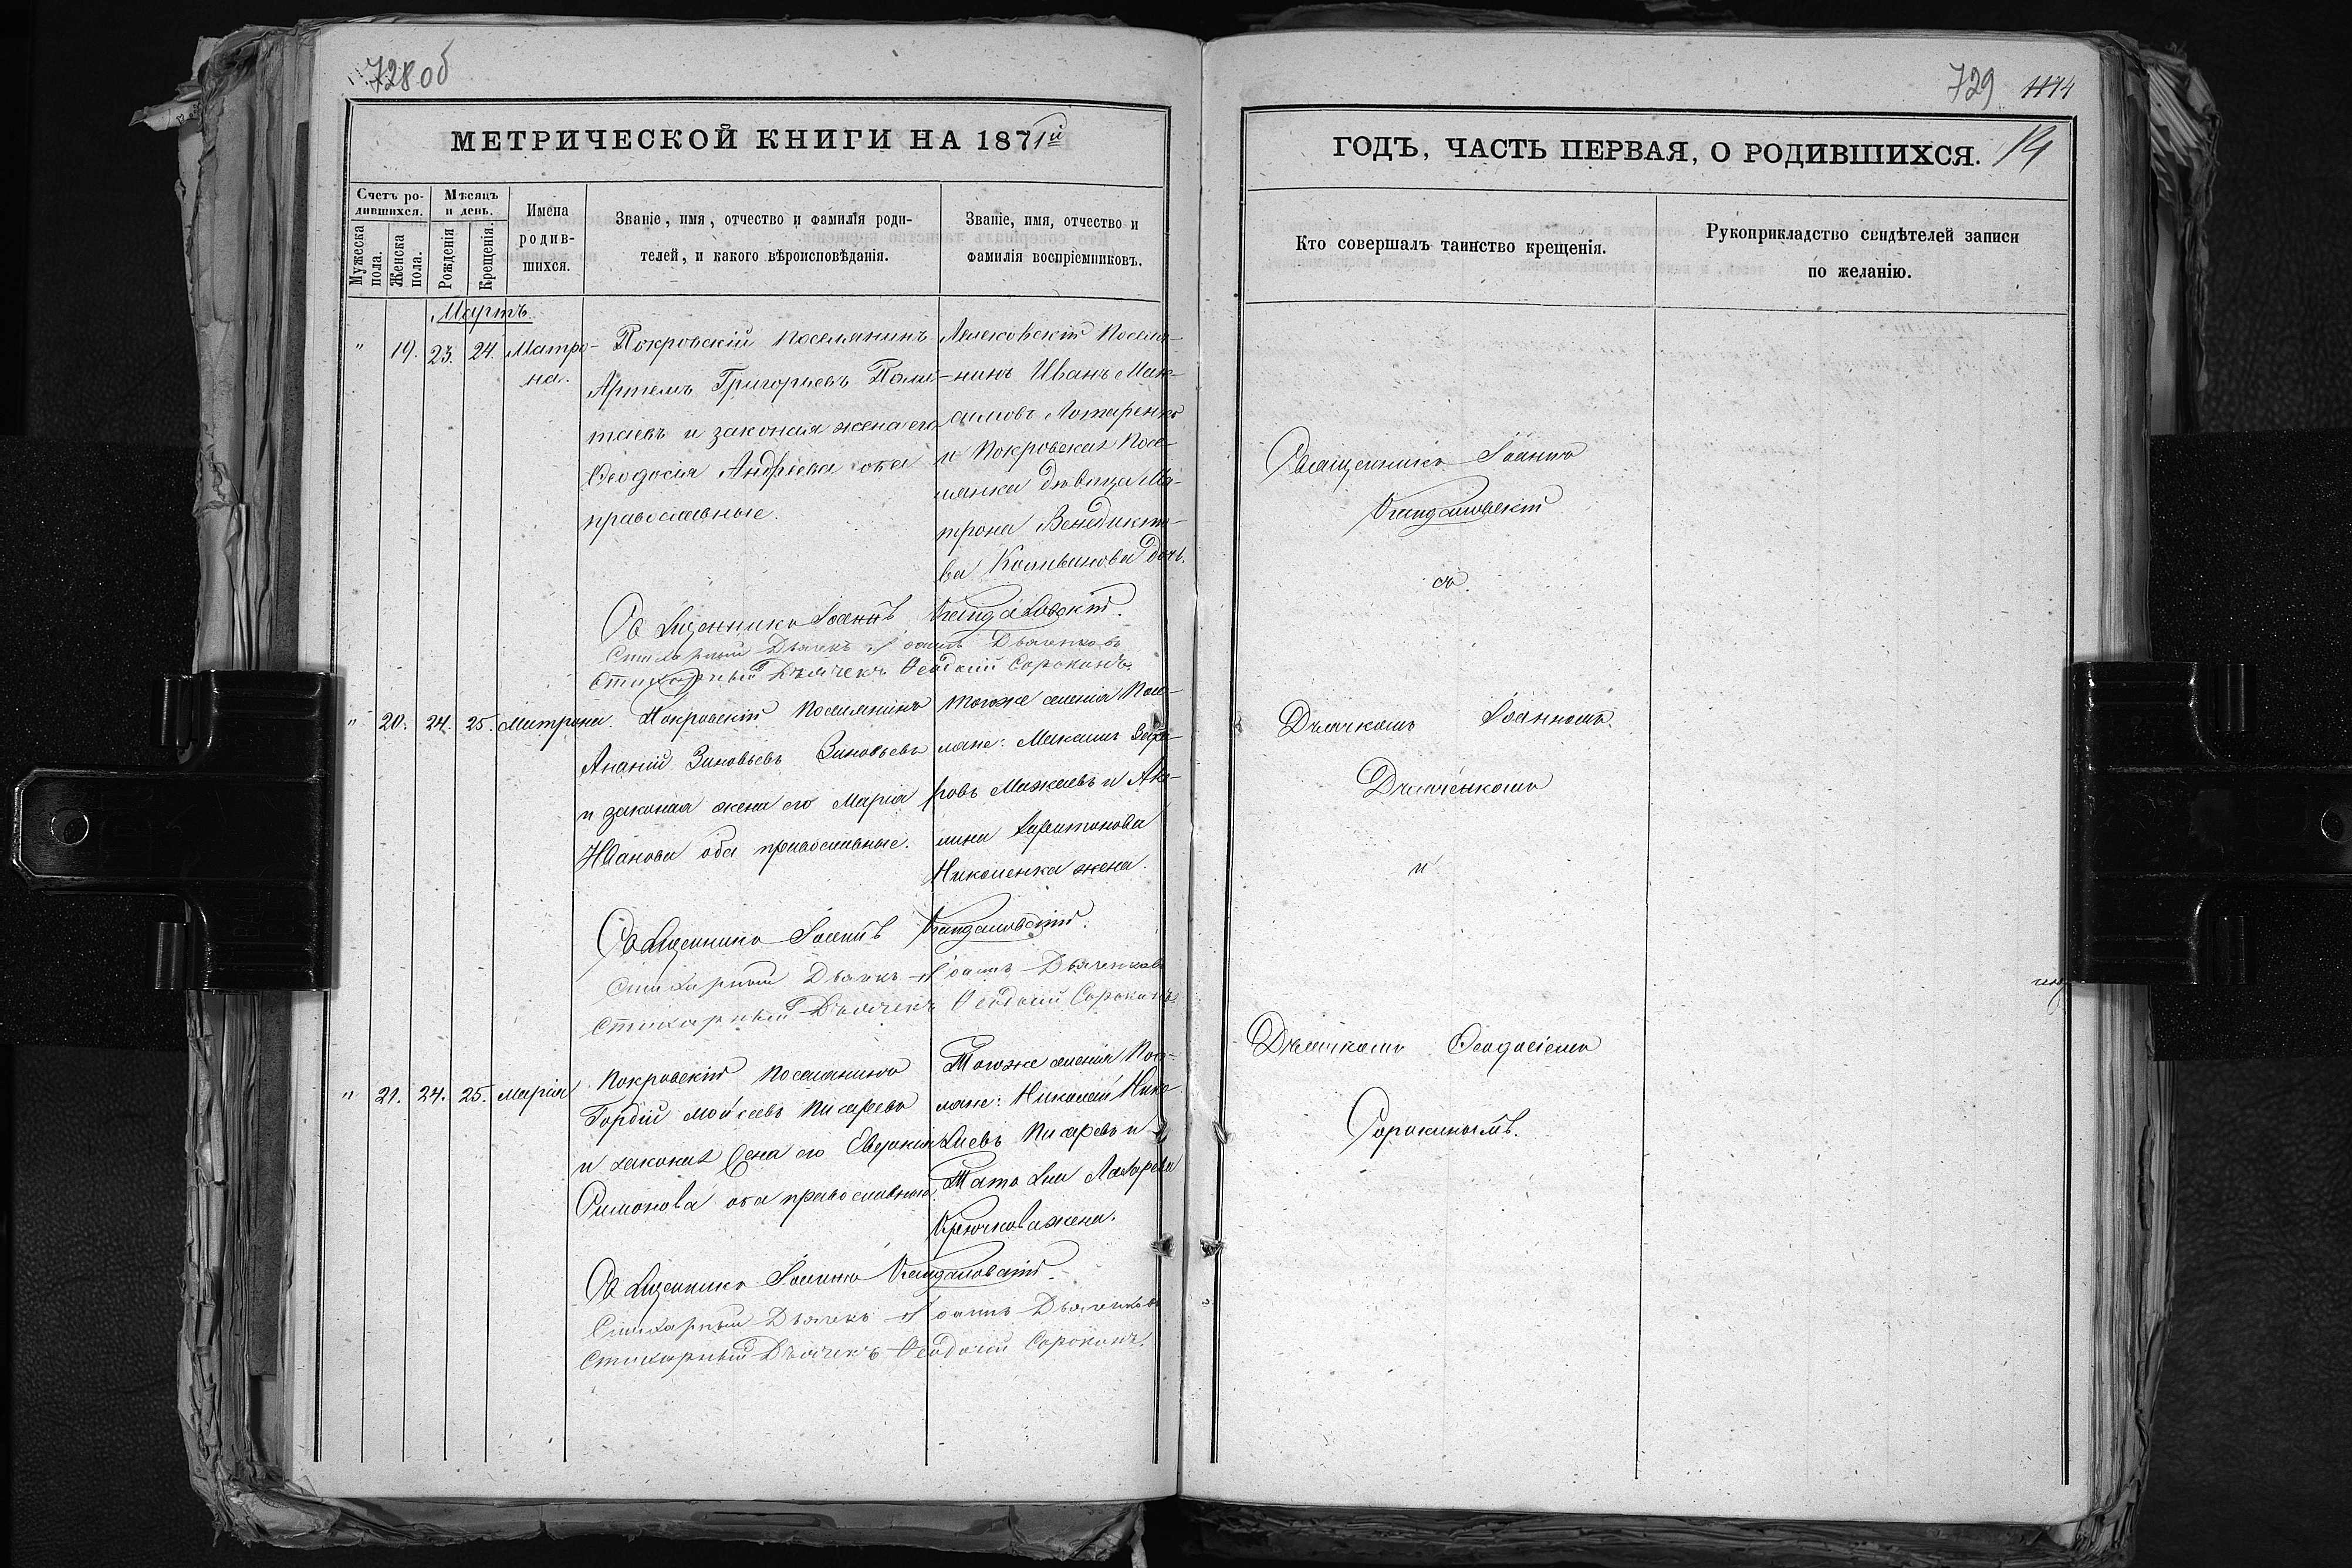 728 об
МЕТРИЧЕСКОЙ КНИГИ НА 1871й
Счетъ ро-
дившихся.
Мѣсяцъ
и день.
Мужеска
пола.
Женска
пола.
Рожденія
Крещенія.
Имена
родив-
шихся.
Званіе, имя, отчество и фамилія роди-
телей, и какого вѣроисповѣданія.
Званіе, имя, отчество и
фамилія воспріемниковъ.
Мартъ
" 19. 23. 24. Матро-
на.
Покровскій поселянинъ
Артемъ Григорьевъ
и законая жена его
Ѳеодосія Андреева оба
православные.
поселя-
нинъ Иванъ Мак-
симовъ
и Покровская посе-
лянка девица Ма-
трона Венедикто-
ва дочь.
Священникъ Іоаннъ
Стихарный Дьячекъ Іоаннъ Дьяченковъ
Стихарный Дьячекъ Ѳеодосій Сорокинъ.
" 20. 24. 25. Матрона.
Покровскій поселянинъ
Ананій Зиновьевъ Зиновьевъ
и законая жена его Марія
Иванова оба православные.
тогоже селенія посе-
ляне: Максимъ
и Аку-
лина Харитонова
Николенка жена.
Священникъ Іоаннъ
Стихарный Дьячекъ Іоаннъ Дьяченковъ
Стихарный Дьячекъ Ѳеодосій Сорокинъ.
" 21. 24. 25. Марія
Покровскій поселянинъ
Гордій Моисеевъ Писаревъ
и законая жена его Евдокія
Симонова оба православные.
Тогоже селенія посе-
ляне: Николай Нико-
лаевъ Писаревъ и
Татьяна Лазарева
Крючкова жена.
Священникъ Іоаннъ
Стихарный Дьячекъ Іоаннъ Дьяченковъ
Стихарный Дьячекъ Ѳеодосій Сорокинъ.
729
ГОДЪ, ЧАСТЬ ПЕРВАЯ, О РОДИВШИХСЯ. 14
Кто совершалъ таинство крещенія.
Рукоприкладство свидѣтелей записи
по желанію.
Священникъ Іоаннъ
съ
Дьячкомъ Іоанномъ
Дьяченкомъ
и
Дьячкомъ Ѳеодосіемъ
Сорокинымъ.